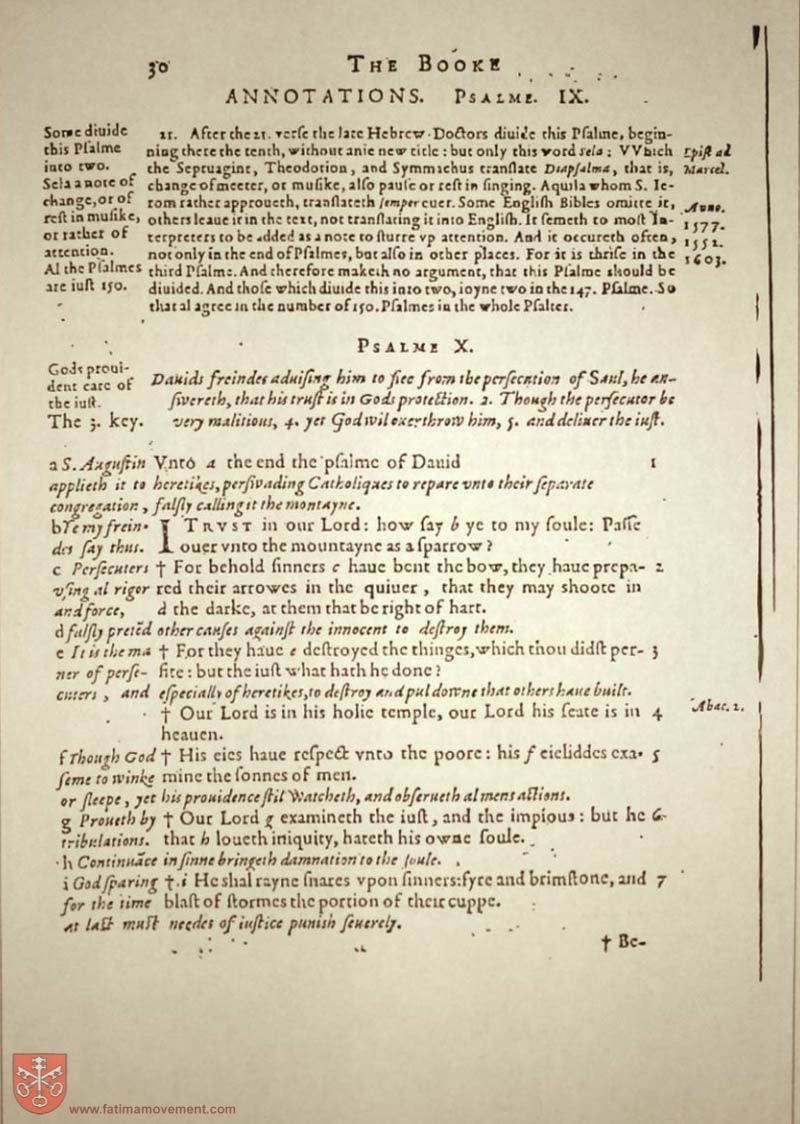 30 THE BOOKE
ANNOTATIONS. PSALME. IX.
Some diuide
this Pſalme
into two.
Sela a note of
change, or of
reſt in muſike,
or rather of
attention.
Al the Pſalmes
are iuſt 150.
21. After the 21. verſe the late Hebrew Doctors diuide this Pſalme, begin-
ning there the tenth, without anie new title: but only this word ſela: VVhich
the Septuagint, Theodotion, and Symmichus tranſlate Diapſalma, that is,
change of meeter, or muſike, alſo pauſe or reſt in ſinging. Aquila whom S. Ie-
rom rather approueth, tranſlateth ſemper euer. Some Engliſh Bibles omitte it,
others leaue it in the text, not tranſlating it into Engliſh. It ſemeth to moſt In-
terpreters to be added as a note to ſturre vp attention. And it occureth often,
not only in the end of Pſalmes, but alſo in other places. For it is thriſe in the
third Pſalme. And therefore maketh no argument, that this Pſalme should be
diuided. And thoſe which diuide this into two, ioyne two in the 147. Pſalme. So
that al agree in the number of 150. Pſalmes in the whole Pſalter.
Epiſt ad
Marcel.
Anno.
1577.
1552.
1603.
PSALME X.
Gods proui-
dent care of
the iuſt.
The 3. key.
Dauids freindes aduiſing him to flee from the perſecution of Saul, he an-
ſwereth, that his truſt is in Gods protection. 2. Though the perſecutor be
very malitious, 4. yet God wil overthrow him, 5. and deliuer the iuſt.
a S. Auguſtin Vnto a the end the pſalme of Dauid 1
applieth it to heretikes, perſwading Catholiques to repare vnto their ſeparate
congregation, falſly calling it the montayne.
b Te my frein- I TRVST in our Lord: how ſay b ye to my ſoule: Paſſe
des ſay thus. ouer vnto the mountayne as a ſparrow?
c Perſecuters † For behold ſinners c haue bent the bow, they haue prepa- 2
vſing al rigor red their arrowes in the quiuer, that they may shoote in
and force, d the darke, at them that be right of hart.
d falſly pretēd other cauſes againſt the innocent to deſtroy them.
e It is the ma † For they haue e deſtroyed the thinges, which thou didſt per- 3
ner of perſe- fite: but the iuſt what hath he done?
cuters, and eſpecially of heretikes, to deſtroy and pul downe that others haue built.
† Our Lord is in his holie temple, our Lord his ſeate is in 4 Abac. 2.
heauen.
f Though God † His eies haue reſpect vnto the poore: his f eieliddes exa- 5
ſeme to winke mine the ſonnes of men.
or ſleepe, yet his prouidence ſtil watcheth, and obſerueth al mens actions.
g Proueth by † Our Lord g examineth the iuſt, and the impious: but he 6
tribulations. that h loueth iniquity, hateth his owne ſoule.
h Continuāce in ſinne bringeth damnation to the ſoule.
i God ſparing † i He shal rayne ſnares vpon ſinners: fyre and brimſtone, and 7
for the time blaſt of ſtormes the portion of their cuppe.
at laſt muſt needes of iuſtice punish ſeuerely.
† Be-
www.fatimamovement.com